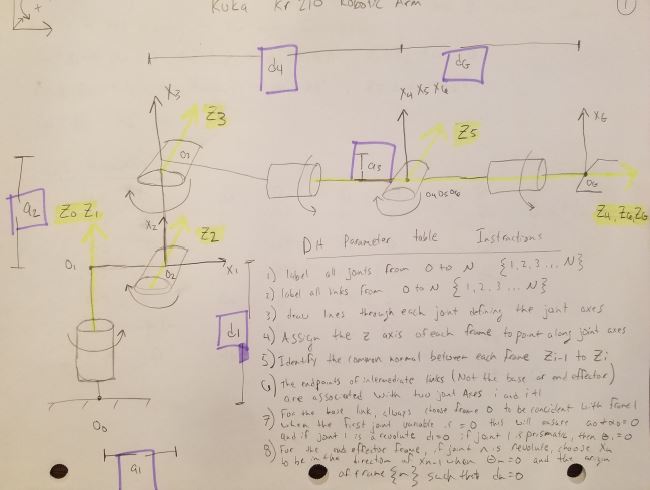 Kuka Kr 210 Robotic Arm
1
+
d4
dG
X3
X4 X5 X6
XG
Z3
Z5
O3
a3
O4O5O6
OG
Z4, Z6, ZG
a2
Z0 Z1
X2
Z2
O1
O2
X1
d1
O0
a1
DH Parameter table Instructions
1) label all joints from 0 to N {1,2,3... N}
2) label all links from 0 to N {1,2,3... N}
3) draw lines through each joint defining the joint axes
4) Assign the Z axis of each frame to point along joint axes
5) Identify the common normal between each frame Zi-1 to Zi
6) The endpoints of intermediate links (Not the base or end effector)
are associated with two joint Axes i and i+1
7) For the base link, always choose frame 0 to be coincident with frame 1
when the first joint variable is = 0 this will ensure a0 = α0 = 0
and if joint 1 is a revolute d1=0 if joint 1 is prismatic, then θ1=0
8) For the end effector frame, if joint n is revolute, choose Xn
to be in the direction of Xn-1 when θn=0 and the origin
of frame {n} such that dn=0